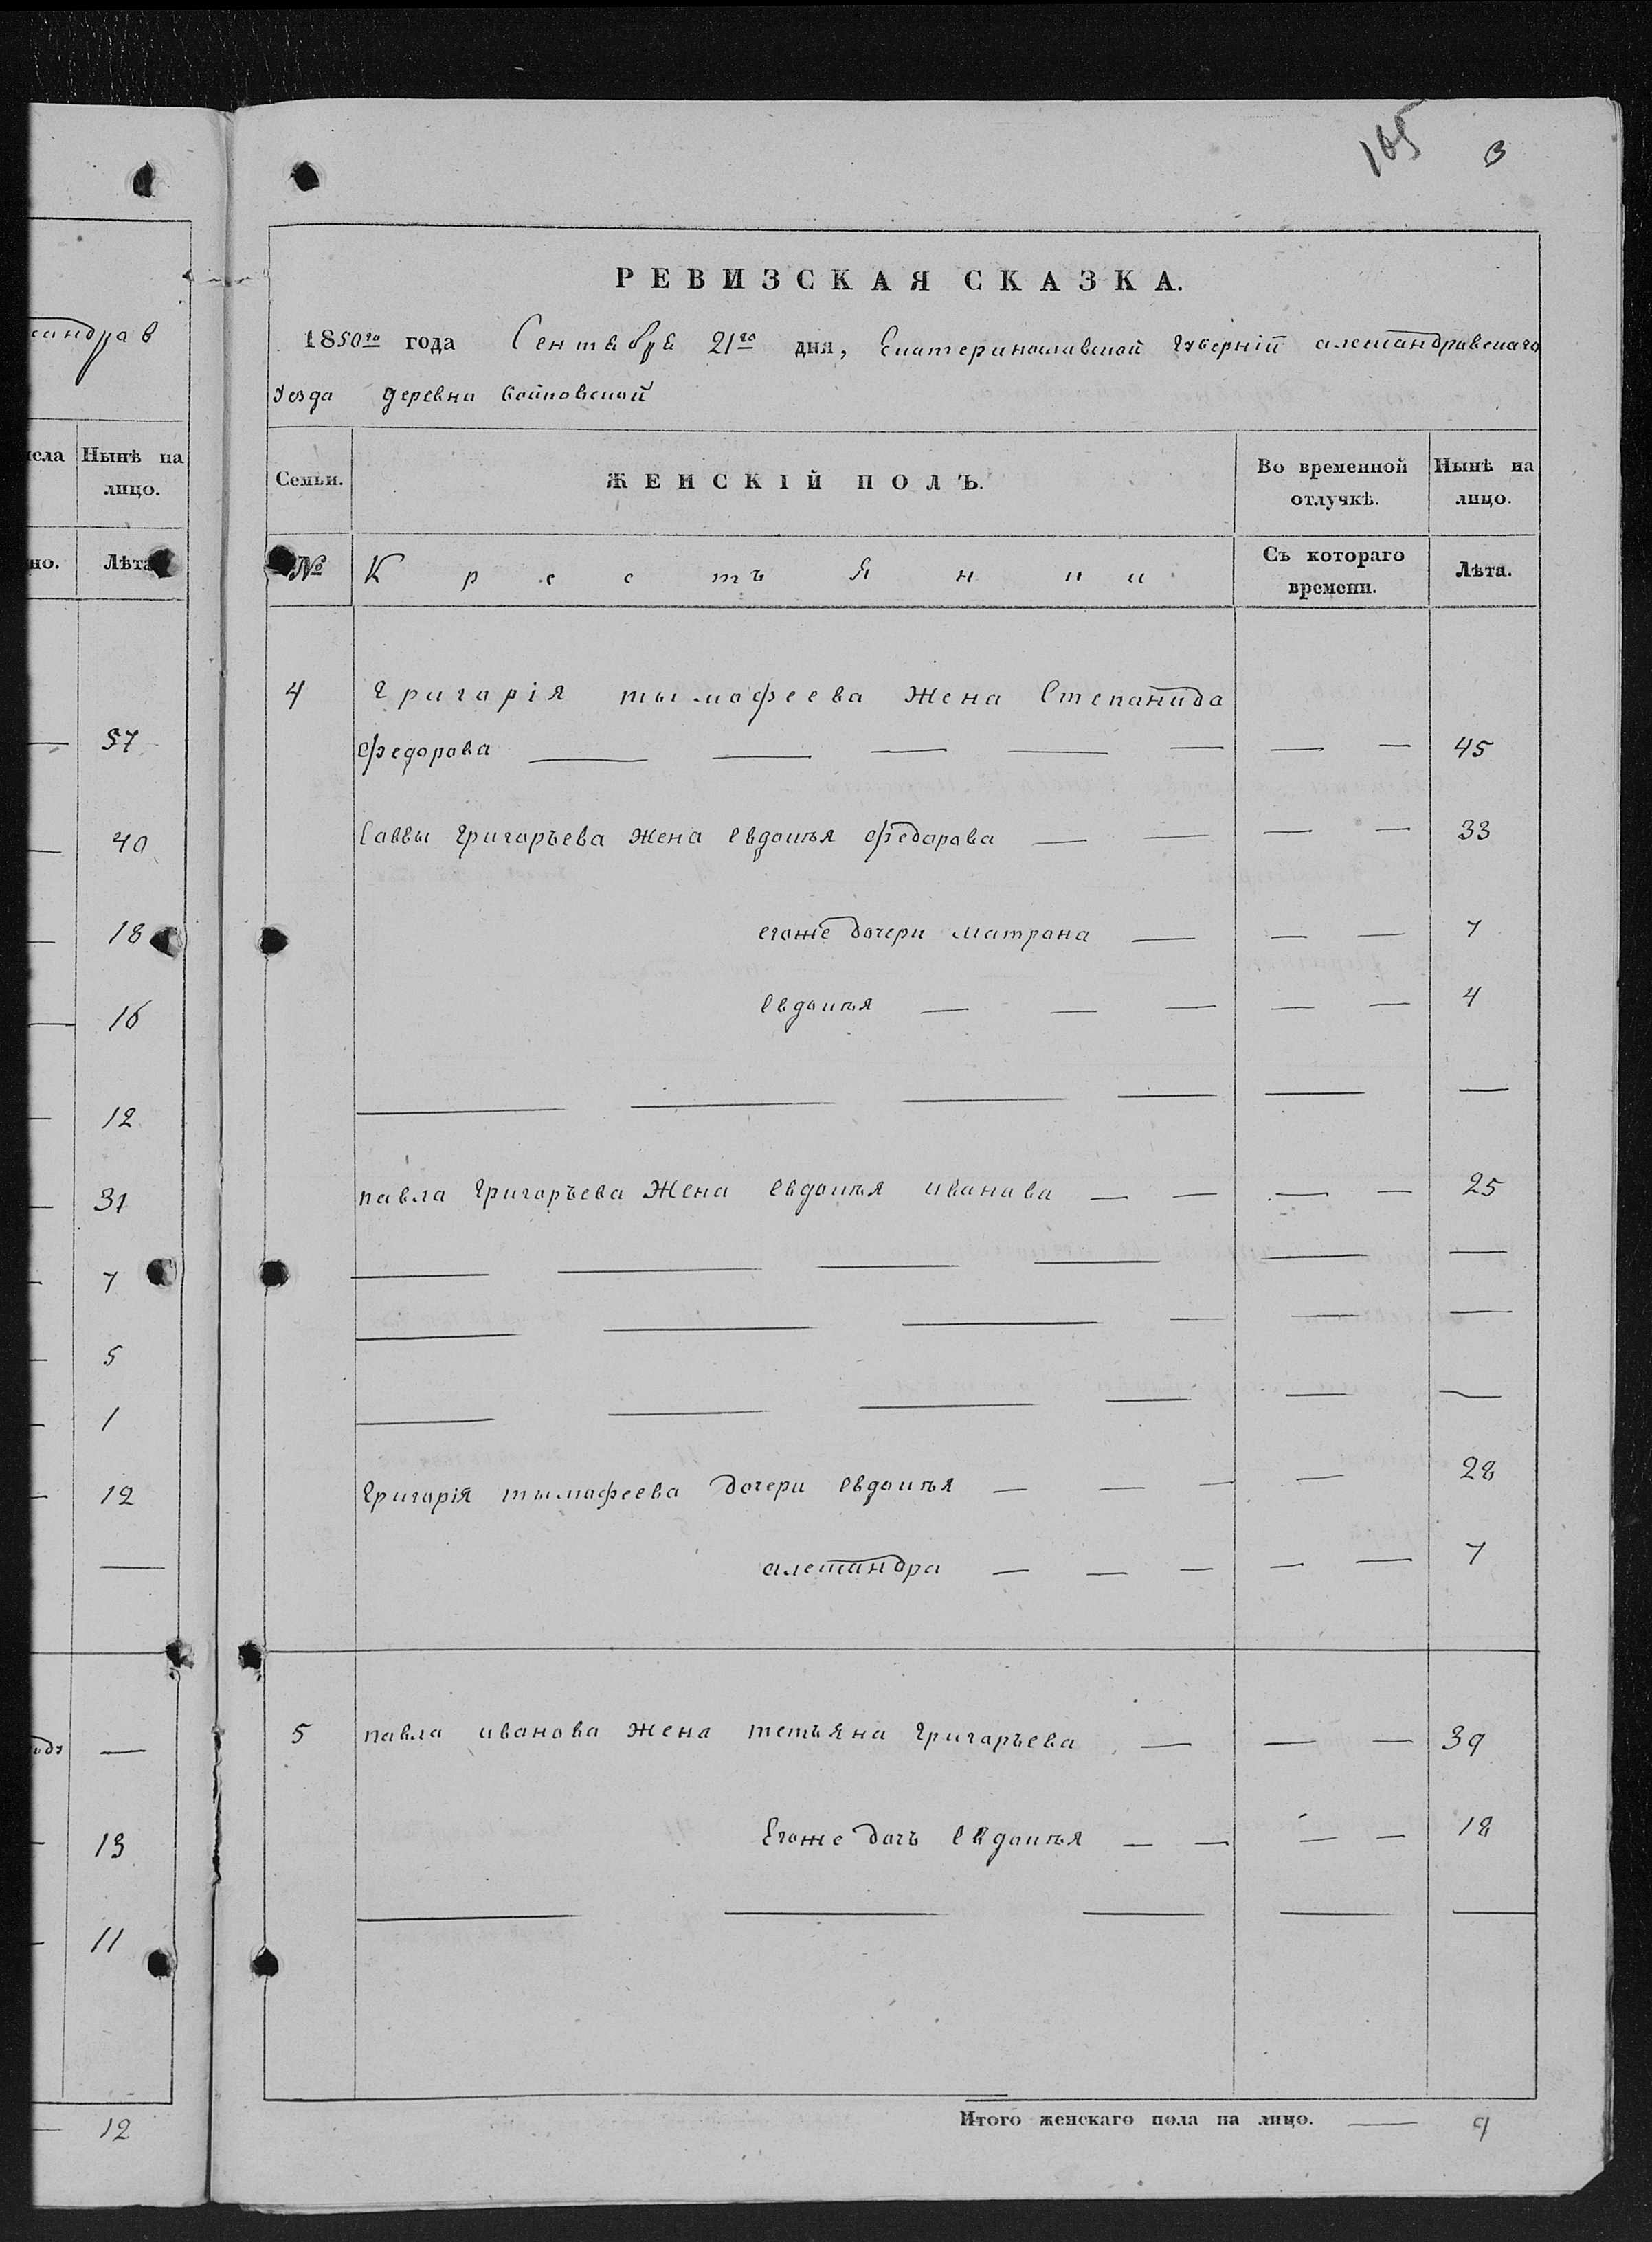 сандрав
исла Нынѣ на
лицо.
но. Лѣта
57
40
18
16
12
31
7
5
1
12
13
11
12
165 3
РЕВИЗСКАЯ СКАЗКА.
1850го года Сентября 21го дня, Екатеринославской Губерніи александравскаго
Уезда деревни
Семьи. ЖЕНСКІЙ ПОЛЪ. Во временной Нынѣ на
отлучкѣ. лицо.
№ Крестъянки Съ котораго Лѣта.
времени.
4 Григарія тымофеева Жена Степанида
федорова 45
Саввы Григаръева Жена Евдокія федорава 33
егоже дочери матрона 7
Евдокія 4
павла Григаръева Жена Евдокія иванова 25
Григарія тымофеева Дочери Евдокія 28
александра 7
5 павла иванова Жена тетьяна Григаръева 39
Егоже дочь Евдокія 18
Итого женскаго пола на лицо. 9